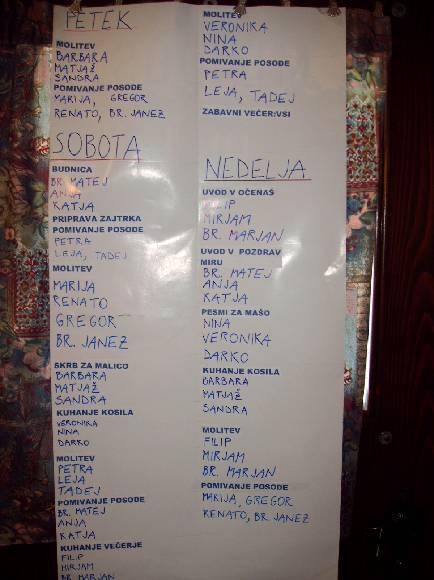 PETEK
MOLITEV
BARBARA
MATJAŽ
SANDRA
POMIVANJE POSODE
MARIJA, GREGOR
RENATO, BR. JANEZ
SOBOTA
BUDNICA
BR. MATEJ
ANJA
KATJA
PRIPRAVA ZAJTRKA
POMIVANJE POSODE
PETRA
LEJA, TADEJ
MOLITEV
MARIJA
RENATO
GREGOR
BR. JANEZ
SKRB ZA MALICO
BARBARA
MATJAŽ
SANDRA
KUHANJE KOSILA
VERONIKA
NINA
DARKO
MOLITEV
PETRA
LEJA
TADEJ
POMIVANJE POSODE
BR. MATEJ
ANJA
KATJA
KUHANJE VEČERJE
FILIP
MIRJAM
BR MARJAN
MOLITEV
VERONIKA
NINA
DARKO
POMIVANJE POSODE
PETRA
LEJA, TADEJ
ZABAVNI VEČER:VSI
NEDELJA
UVOD V OČENAŠ
FILIP
MIRJAM
BR. MARJAN
UVOD V POZDRAV
MIRU
BR. MATEJ
ANJA
KATJA
PESMI ZA MAŠO
NINA
VERONIKA
DARKO
KUHANJE KOSILA
BARBARA
MATJAŽ
SANDRA
MOLITEV
FILIP
MIRJAM
BR. MARJAN
POMIVANJE POSODE
MARIJA, GREGOR
RENATO, BR. JANEZ